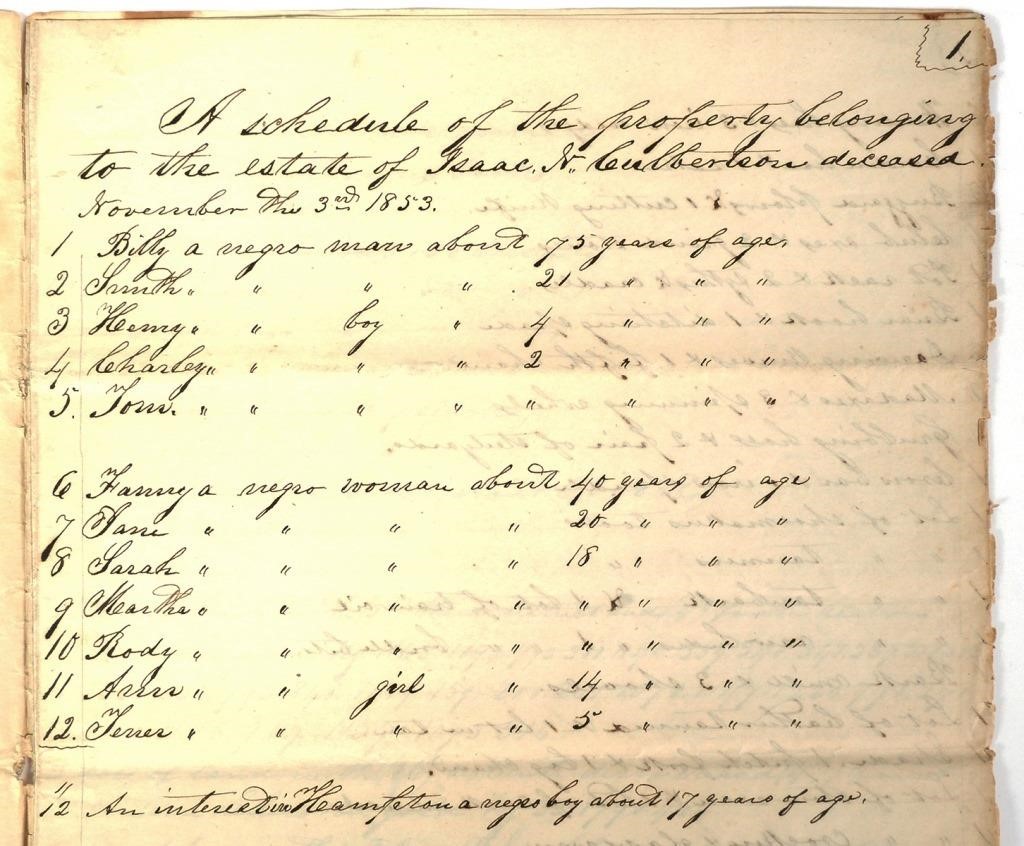 1.
A schedule of the property belonging
to the estate of Isaac. N. Culbertson deceased.
November the 3rd 1853.
1 Billy a negro man about 75 years of age.
2 Smith " " " " 21 " " "
3 Henry " " boy " 4 " " "
4 Charley " " " " 2 " " "
5. Tom. " " " " " " " "
6 Fanny a negro woman about 40 years of age
7 Jane " " " " 20 " " "
8 Sarah " " " " 18 " " "
9 Martha " " " " " " " "
10 Rody " " " " " " " "
11 Ann " " girl " 14 " " "
12. " " " " 5 " " "
"
12 An interest in Hampton a negro boy about 17 years of age.